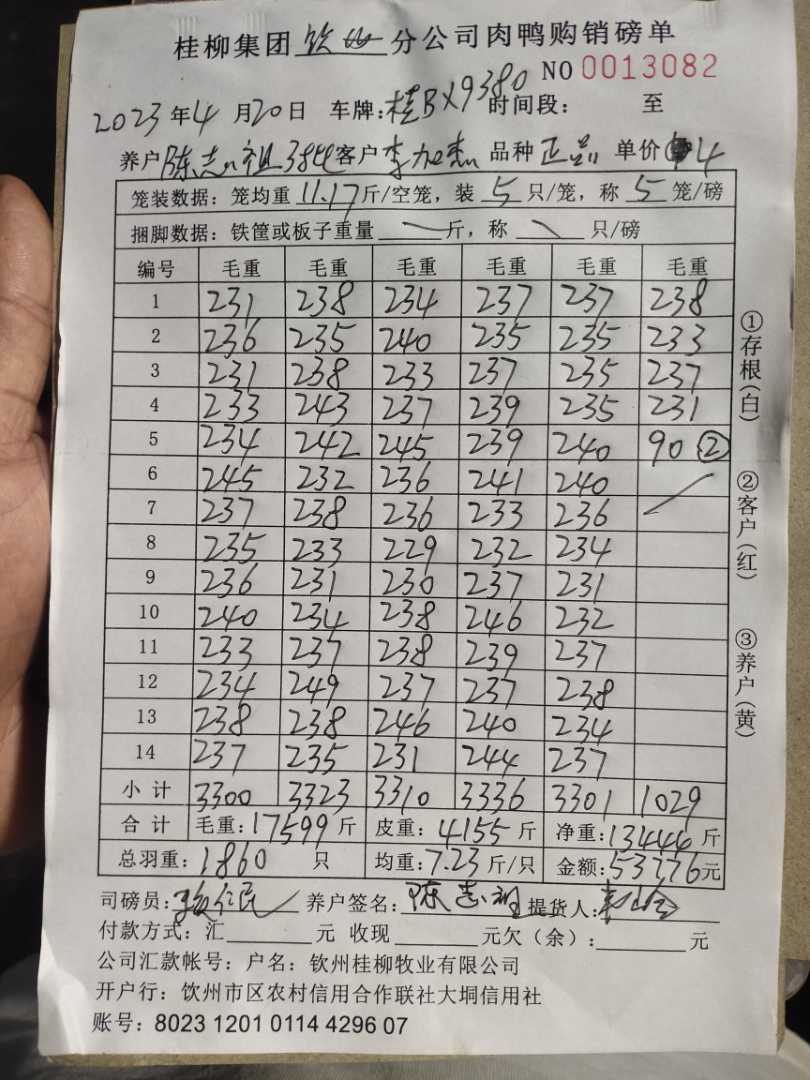 桂柳集团 钦州 分公司肉鸭购销磅单
NO 0013082
2023年4月20日 车牌:桂BX9380 时间段: 至
养户 陈志祖 客户 李加 品种 正品 单价 4
笼装数据:笼均重 11.17 斤/空笼,装 5 只/笼,称 5 笼/磅
捆脚数据:铁筐或板子重量 斤,称 只/磅
编号 毛重 毛重 毛重 毛重 毛重 毛重
1 231 238 234 237 237 238
2 236 235 240 235 235 233
3 231 238 233 237 235 237
4 233 243 237 239 235 231
5 234 242 245 239 240 90 ②
6 245 232 236 241 240
7 237 238 236 233 236
8 235 233 229 232 234
9 236 231 230 237 231
10 240 234 238 246 232
11 233 237 238 239 237
12 234 249 237 237 238
13 238 238 246 240 234
14 237 235 231 244 237
小计 3300 3323 3310 3336 3301 1029
合计 毛重:17599斤 皮重:4155斤 净重:13444斤
总羽重:1860只 均重:7.23斤/只 金额:53776元
司磅员: 仁民 养户签名:陈志祖 提货人:
付款方式:汇 元 收现 元欠(余): 元
公司汇款帐号:户名:钦州桂柳牧业有限公司
开户行:钦州市区农村信用合作联社大垌信用社
账号:8023 1201 0114 4296 07
①存根(白)
②客户(红)
③养户(黄)